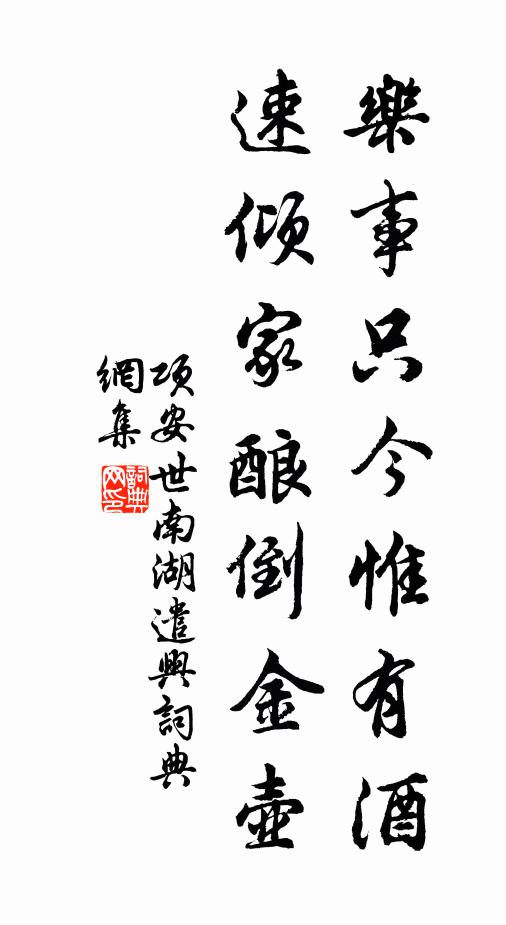 樂事只今惟有酒
速傾家酿倒金壺
項安世南湖遣興詞典
網集
詞典